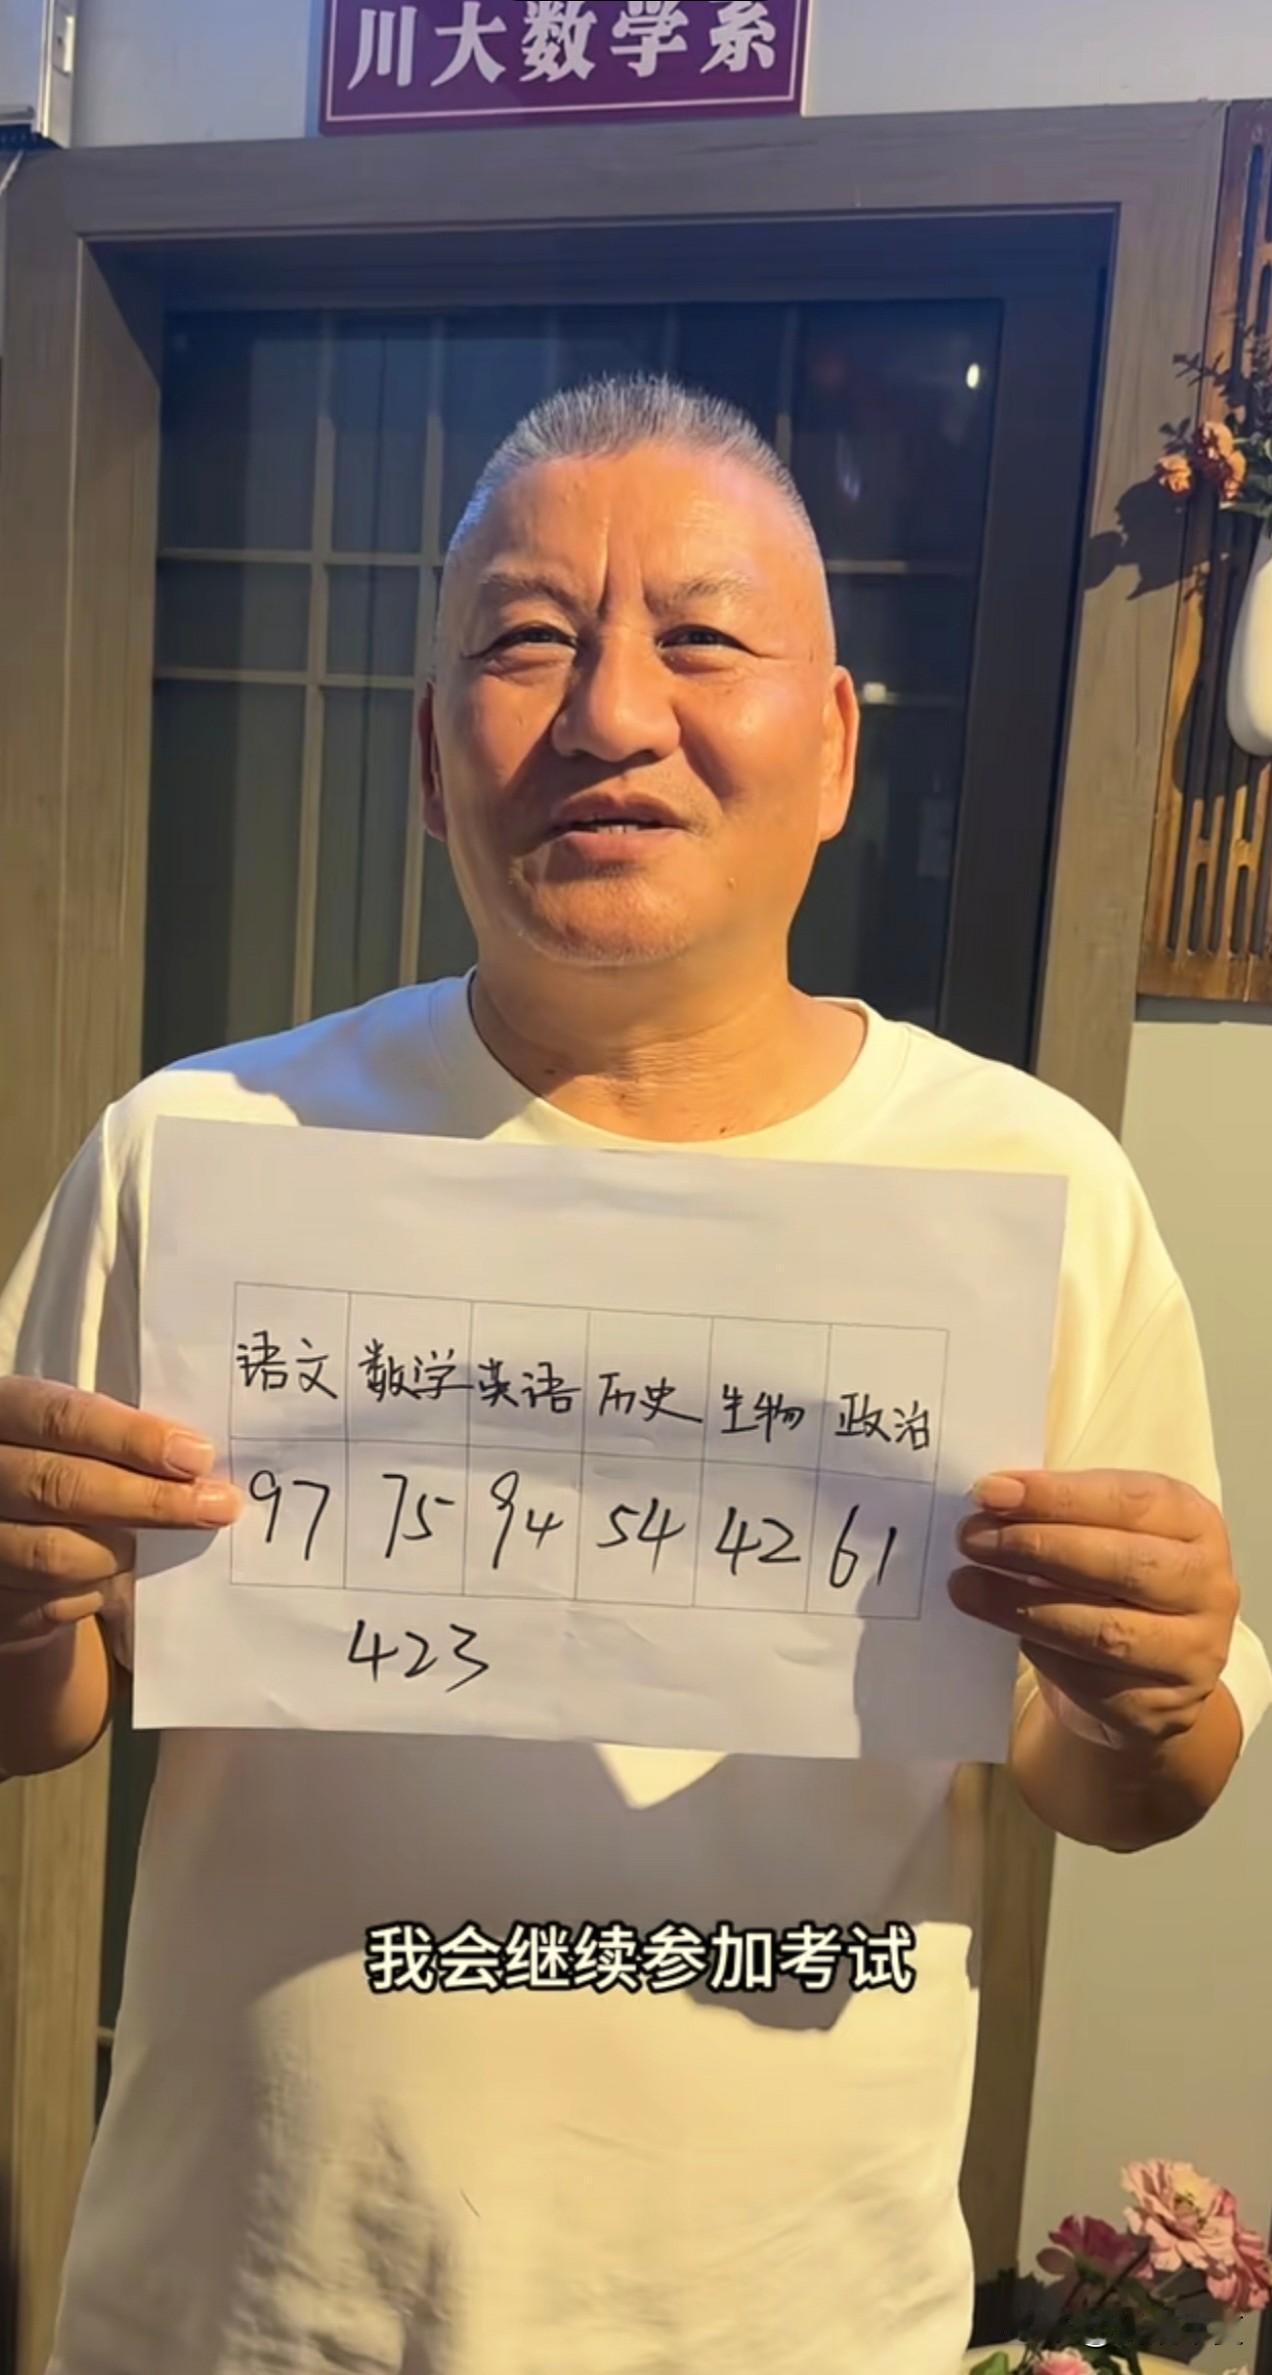 川大数学系
语文 数学 英语 历史 生物 政治
97 75 94 54 42 61
423
我会继续参加考试